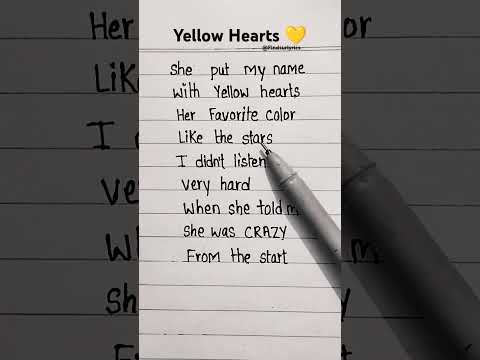 Yellow Hearts 💛
@Findurlyrics
She put my name
with Yellow hearts
Her Favorite color
Like the stars
I didnt listen
very hard
When she told
She was CRAZY
From the start